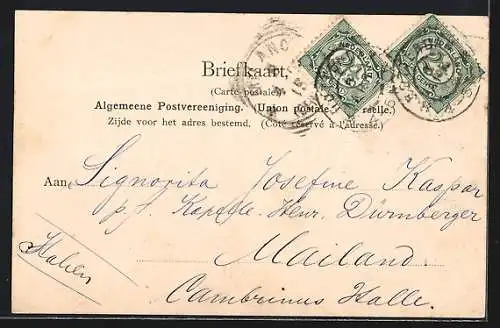 Briefkaart.
(Carte postale.)
Algemeene Postvereeniging. (Union postale
Zijde voor het adres bestemd. (Côté réservé à l'adresse.)
Aan Signorita Josefine Kaspar
p. Kapelle Henr. Dürnberger
Mailand
Cambrinus Halle.
Italien